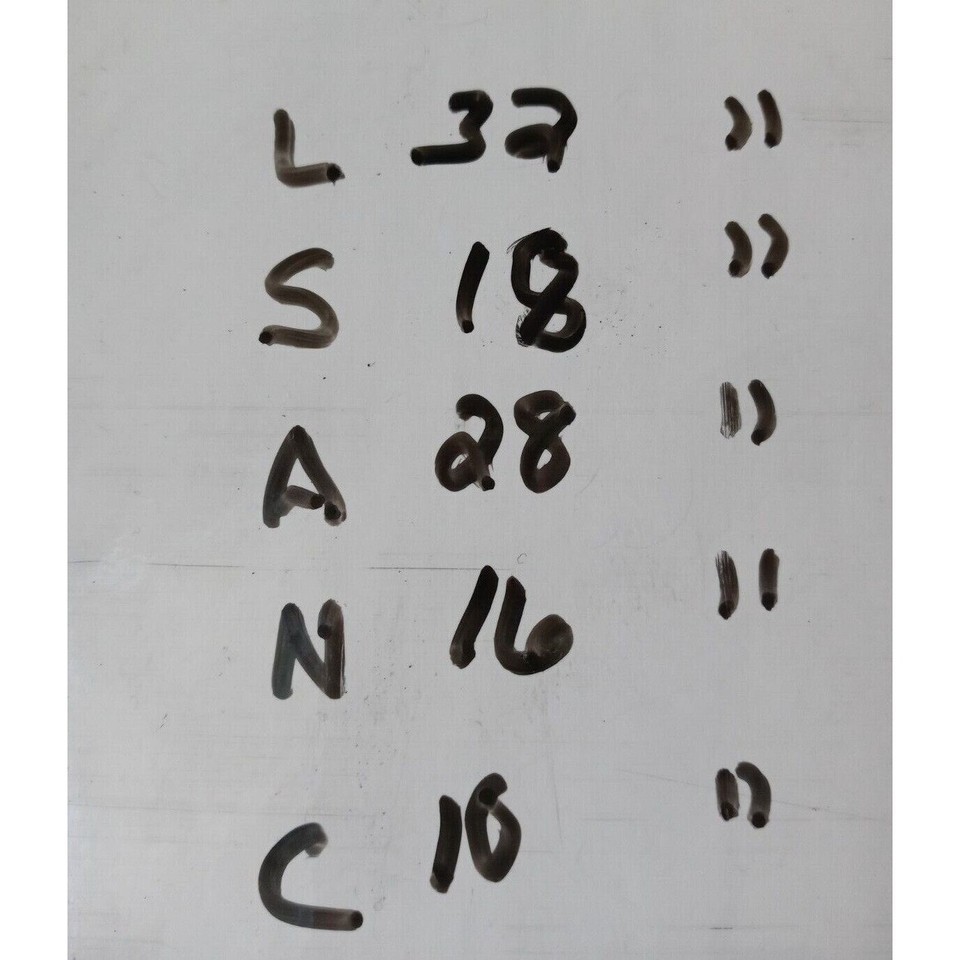 L 32 "
S 18 "
A 28 "
N 16 "
C 10 "